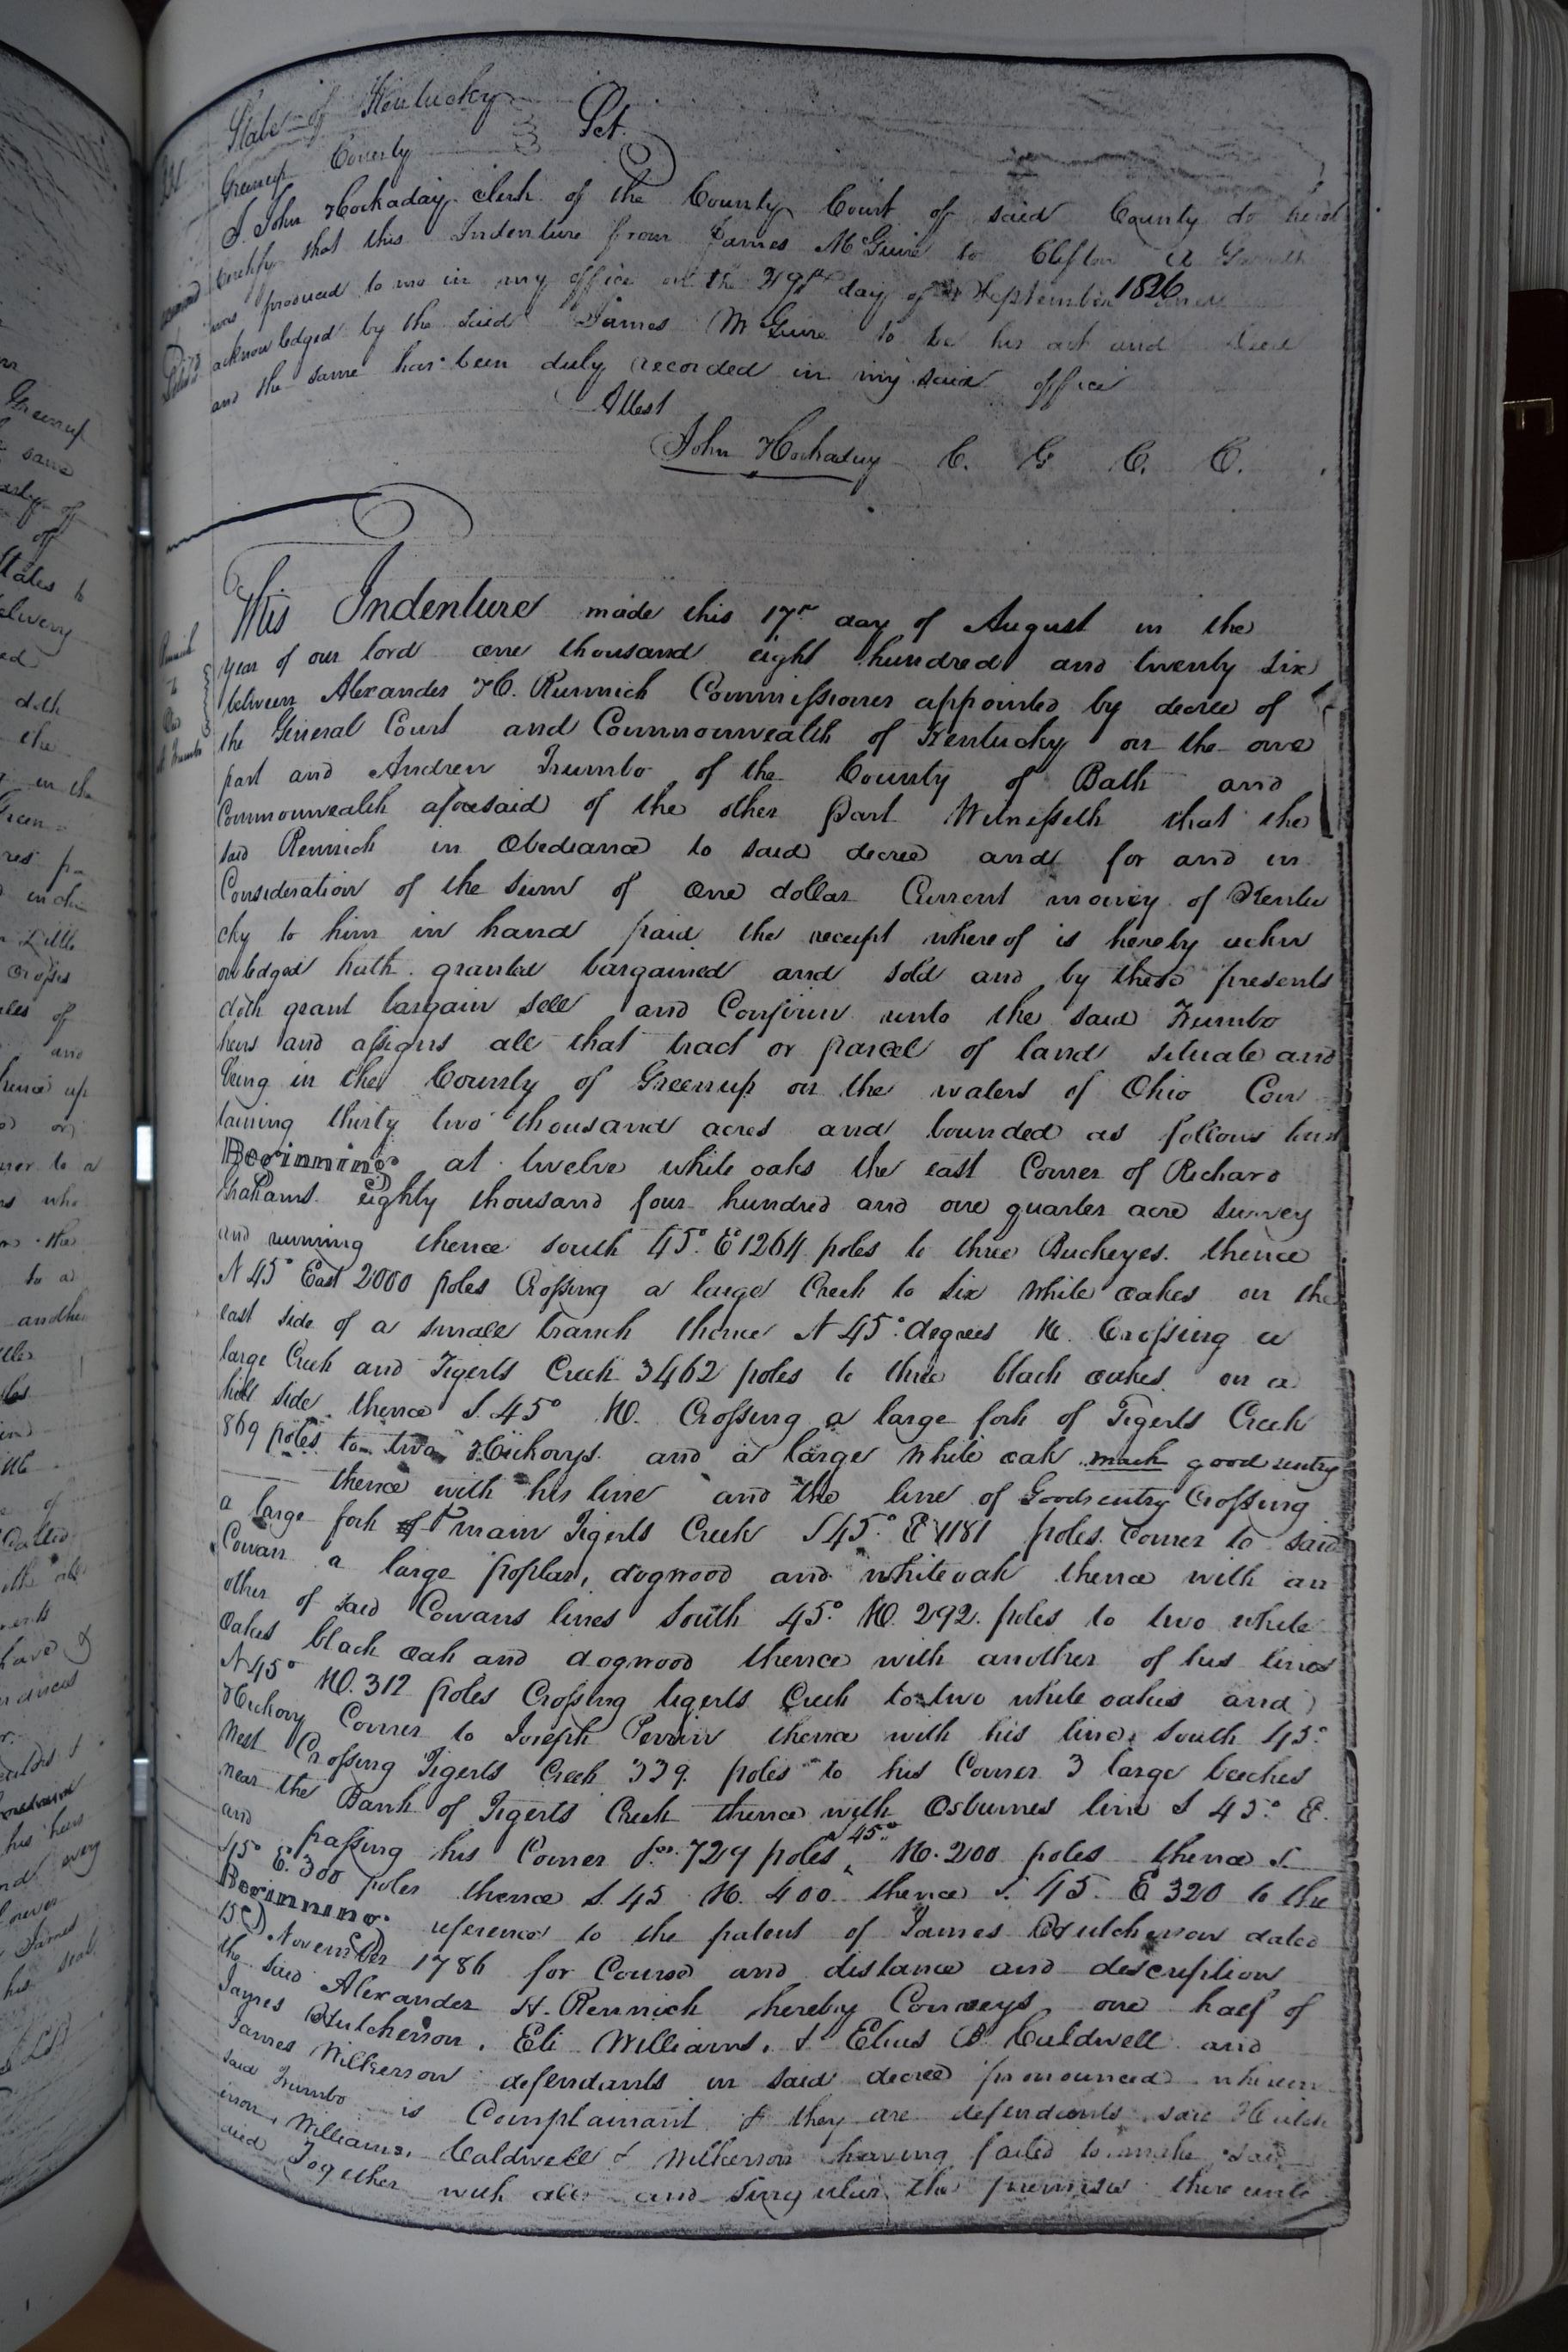 State of Kentucky
Greenup County Sct.
I. John Hockaday clerk of the County Court of said County do here
certify that this Indenture from James McGuire to Clifton A
was produced to me in my office on the day of September 1826
acknowledged by the said James McGuire to be his act and deed
and the same has been duly recorded in my said office
Attest
John Hockaday C. G. C. C.
This Indenture made this 17th day of August in the
year of our lord one thousand eight hundred and twenty six
between Alexander H. Rennick Commissioner appointed by decree of
the General Court and Commonwealth of Kentucky on the one
part and Andrew Trumbo of the County of Bath and
Commonwealth aforesaid of the other part Witnesseth that the
said Rennick in Obediance to said decree and for and in
Consideration of the sum of one dollar Current money of Kentu
cky to him in hand paid the receipt whereof is hereby ackn
owledged hath granted bargained and sold and by these presents
doth grant bargain sell and Confirm unto the said Trumbo
heirs and assigns all that tract or parcel of land situate and
being in the County of Greenup on the waters of Ohio Con
taining thirty two thousand acres and bounded as follows
Beginning at twelve white oaks the east Corner of Richard
Grahams eighty thousand four hundred and one quarter acre survey
and running thence south 45° E 1264 poles to three Buckeyes. thence
N 45° East 2000 poles Crossing a large Creek to six white oakes on the
east side of a small branch thence N 45° degrees W. Crossing a
large Creek and Tigerts Creek 3462 poles to three black oakes on a
hill side thence S. 45° W. Crossing a large fork of Tigerts Creek
869 poles to two Hickorys and a large white oak mark good entry
thence with his line and the line of Goodsentry Crossing
a large fork of main Tigerts Creek S 45° E 1181 poles Corner to said
Cowan a large poplar, dogwood and whiteoak thence with an
other of said Cowans lines South 45° W. 292. poles to two white
oakes black oak and dogwood thence with another of his lines
N 45° W. 312 poles Crossing tigerts Creek to two white oakes and
Hickory Corner to Joseph Perrin thence with his line South 45°
West Crossing Tigerts Creek 339 poles to his Corner 3 large beeches
near the Bank of Tigerts Creek thence with Osburnes line S 45° E.
and passing his Corner 729 poles N 45° W. 200 poles thence S
45° E. 300 poles thence S. 45 W. 400 thence S. 45. E 320 to the
Beginning reference to the patent of James Hutcherson dated
15 November 1786 for Course and distance and description
the said Alexander H. Rennick hereby Conveys one half of
James Hutcherson, Eli Williams, & Elias B. Caldwell and
James Wilkerson defendants in said decree pronounced wherein
said Trumbo is Complainant & they are defendants said Hutch
inson, Williams, Caldwell & Wilkerson having failed to make said
deed Together with all and singular the premises thereunto